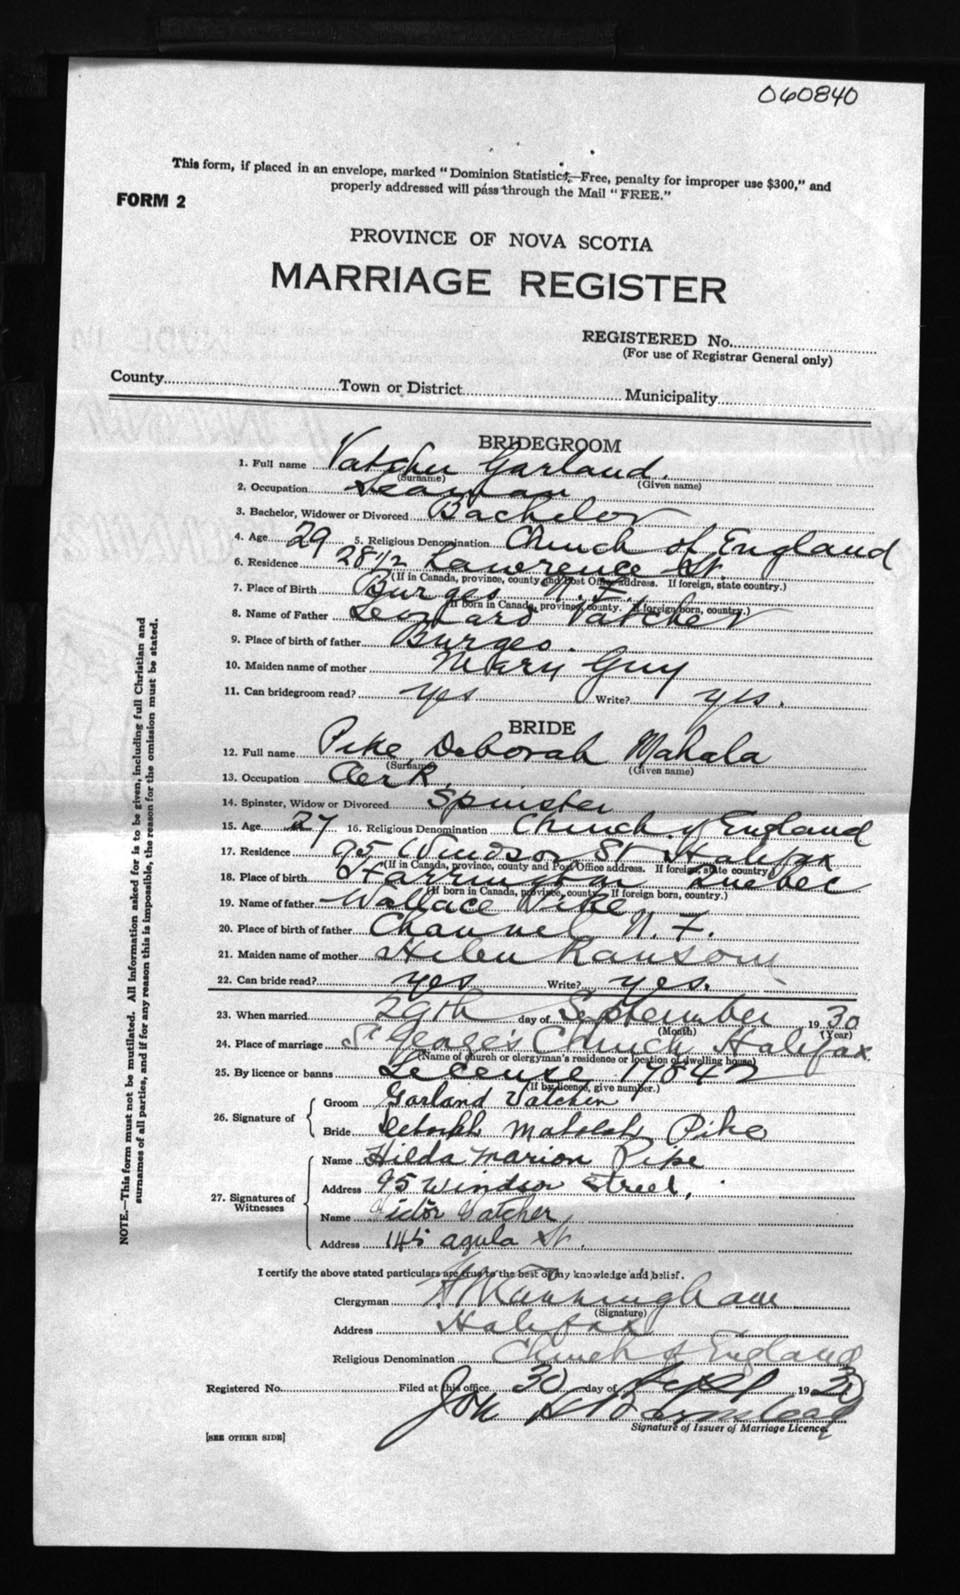 060840
This form, if placed in an envelope, marked "Dominion Statistics,—Free, penalty for improper use $300," and
properly addressed will pass through the Mail "FREE."
FORM 2
PROVINCE OF NOVA SCOTIA
MARRIAGE REGISTER
REGISTERED No.
(For use of Registrar General only)
County Town or District Municipality
BRIDEGROOM
1. Full name Vatcher Garland.
(Surname) (Given name)
2. Occupation Seaman
3. Bachelor, Widower or Divorced Bachelor
4. Age 29 5. Religious Denomination Church of England
6. Residence 28 1/2 Lawrence St.
(If in Canada, province, county and Post Office address. If foreign, state country.)
7. Place of Birth Burgeo N. F.
(If born in Canada, province, county. If foreign born, country.)
8. Name of Father Leonard Vatcher
9. Place of birth of father Burgeo.
10. Maiden name of mother Mary Guy
11. Can bridegroom read? yes Write? yes.
BRIDE
12. Full name Pike Deborah Mahala
(Surname) (Given name)
13. Occupation Clerk
14. Spinster, Widow or Divorced Spinster
15. Age 27 16. Religious Denomination Church of England
17. Residence 95 Windsor St Halifax
(If in Canada, province, county and Post Office address. If foreign, state country.)
18. Place of birth Harrington Quebec
(If born in Canada, province, county. If foreign born, country.)
19. Name of father Wallace Pike
20. Place of birth of father Channel N. F.
21. Maiden name of mother Helen Ransom
22. Can bride read? yes Write? yes.
23. When married 29th day of September 1930
(Month) (Year)
24. Place of marriage St George's Church Halifax
(Name of church or clergyman's residence or location of dwelling house)
25. By licence or banns License 19842
(If by licence, give number.)
26. Signature of
Groom Garland Vatcher
Bride Deborah Mahalah Pike
27. Signatures of Witnesses
Name Hilda Marion Pike
Address 95 Windsor Street,
Name Victor Vatcher
Address St.
I certify the above stated particulars are true to the best of my knowledge and belief.
Clergyman
(Signature)
Address Halifax
Religious Denomination Church of England
Registered No. Filed at this office 30 day of Sept 1930
Signature of Issuer of Marriage Licence
[SEE OTHER SIDE]
NOTE.—This form must not be mutilated. All information asked for is to be given, including full Christian and
surnames of all parties, and if for any reason this is impossible, the reason for the omission must be stated.